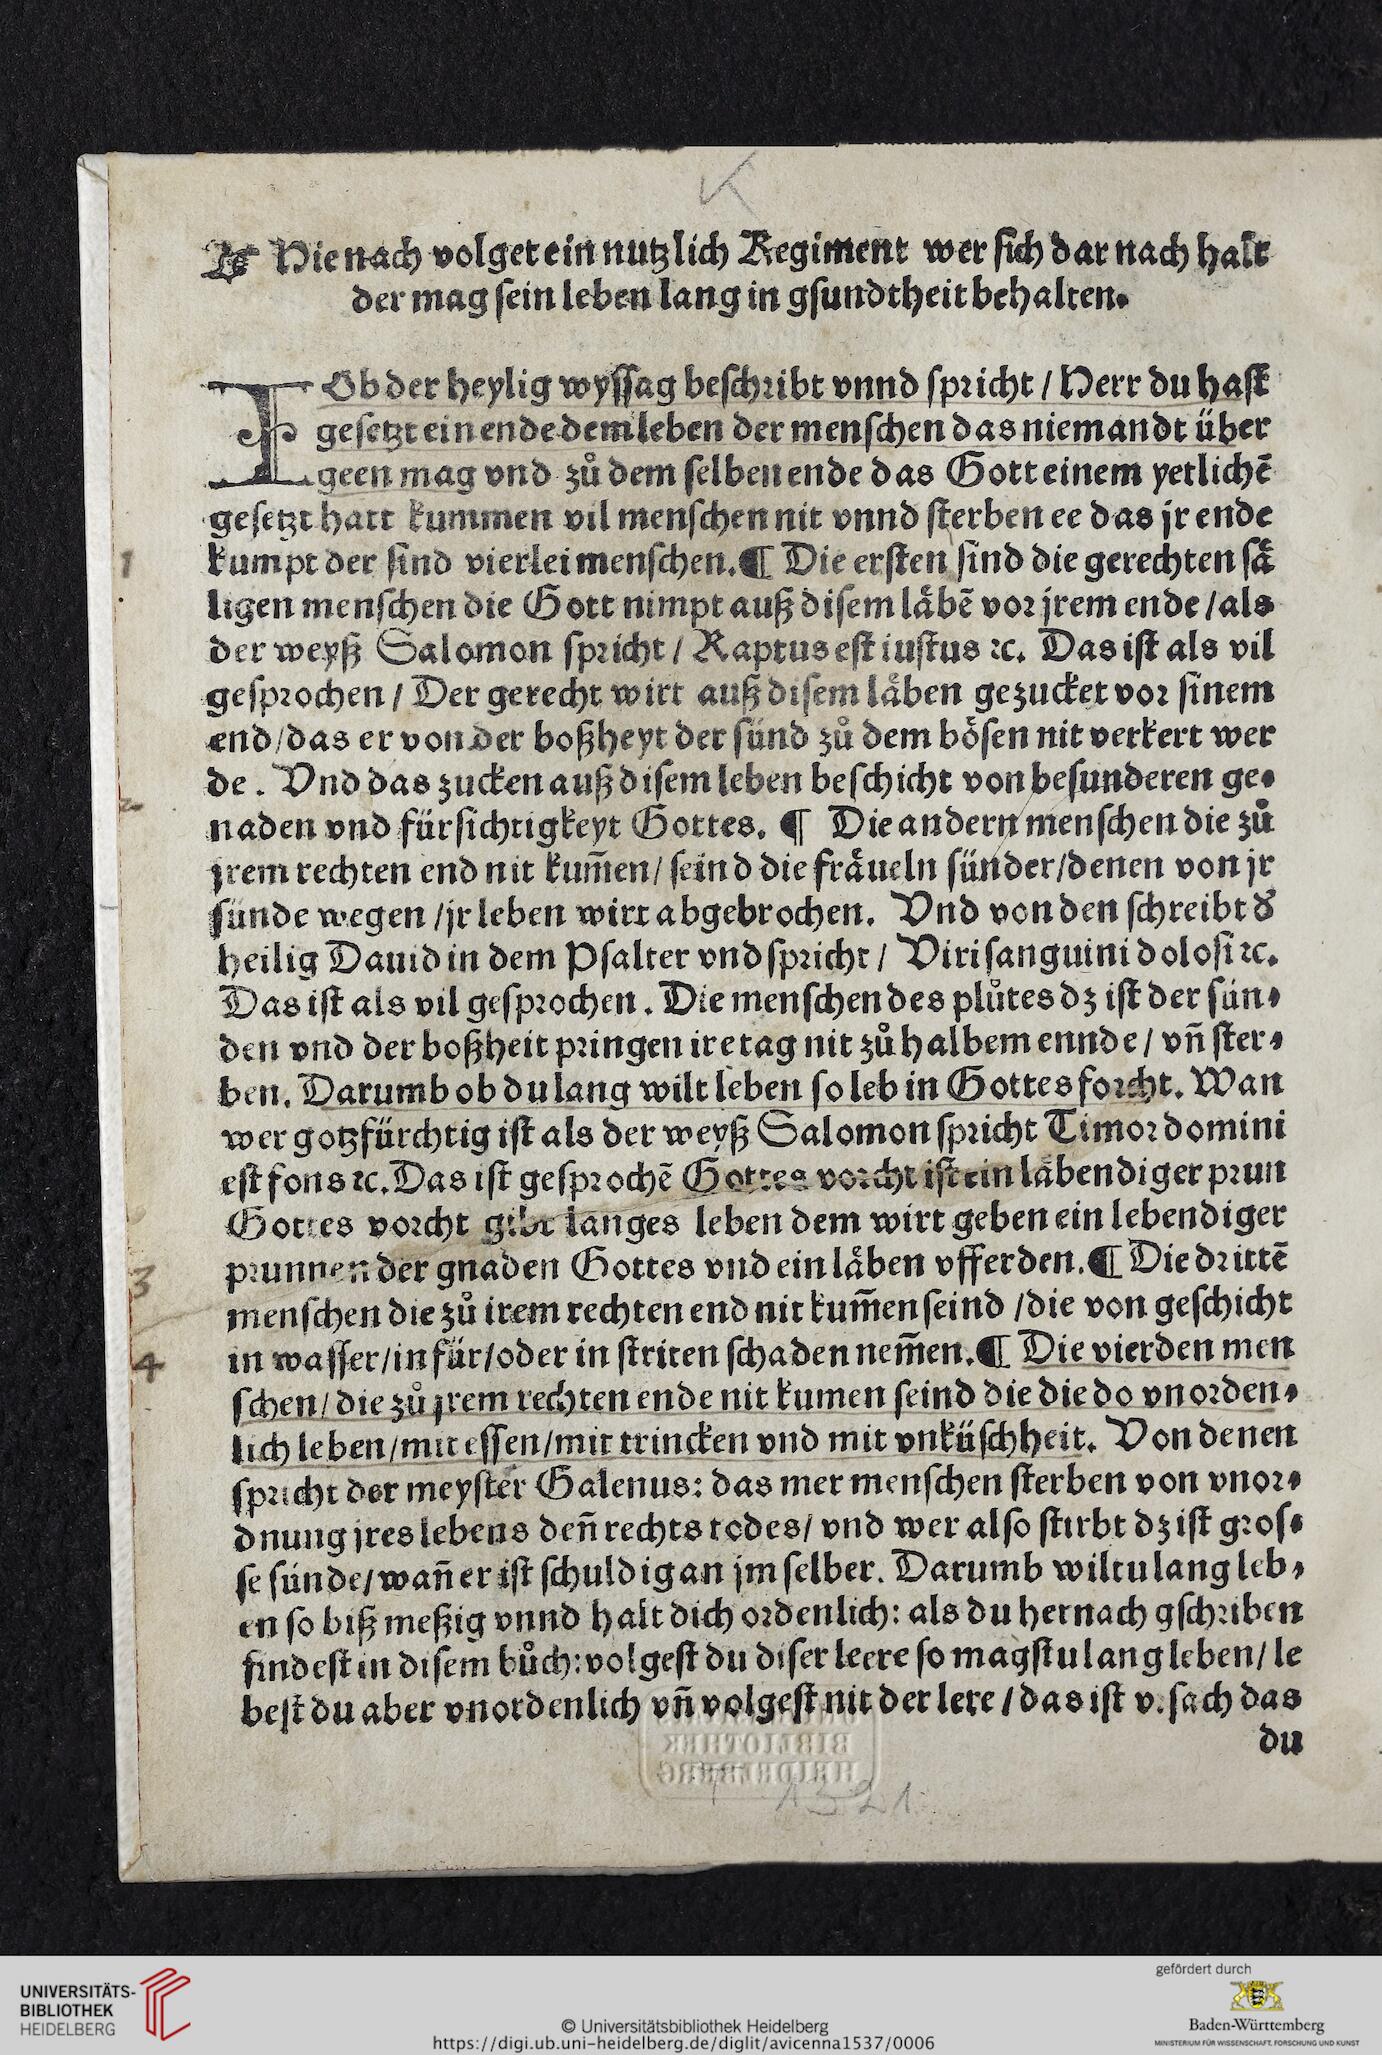 K
Hienach volget ein nutzlich Regiment wer sich dar nach halt
der mag sein leben lang in gsundtheit behalten.
IOb der heylig wyssag beschribt vnnd spricht / Herr du hast
gesetzt ein ende dem leben der menschen das niemandt über
geen mag vnd zů dem selben ende das Gott einem yetlichē
gesetzt hatt kummen vil menschen nit vnnd sterben ee das jr ende
1 kumpt der sind vierlei menschen. ¶ Die ersten sind die gerechten sä
ligen menschen die Gott nimpt auß disem läbē vor jrem ende / als
der weyß Salomon spricht / Raptus est iustus ꝛc. Das ist als vil
gesprochen / Der gerecht wirt auß disem läben gezucket vor sinem
end / das er von der boßheyt der sünd zů dem bösen nit verkert wer
de. Vnd das zucken auß disem leben beschicht von besunderen ge⸗
2 naden vnd fürsichtigkeyt Gottes. ¶ Die andern menschen die zů
jrem rechten end nit kum̄en / seind die fräueln sünder / denen von jr
sünde wegen / jr leben wirt abgebrochen. Vnd von den schreibt d᷑
heilig Dauid in dem Psalter vnd spricht / Viri sanguini dolosi ꝛc.
Das ist als vil gesprochen. Die menschen des plůtes dz ist der sün⸗
den vnd der boßheit pringen ire tag nit zů halbem ennde / vn̄ ster⸗
ben. Darumb ob du lang wilt leben so leb in Gottes forcht. Wan
wer gotzfürchtig ist als der weyß Salomon spricht Timor domini
est fons ꝛc. Das ist gesprochē Gottes vorcht ist ein läbendiger prun
Gottes vorcht gibt langes leben dem wirt geben ein lebendiger
3 prunnen der gnaden Gottes vnd ein läben vff erden. ¶ Die drittē
menschen die zů irem rechten end nit kum̄en seind / die von geschicht
4 in wasser / in für / oder in striten schaden nem̄en. ¶ Die vierden men
schen / die zů jrem rechten ende nit kumen seind die die do vnorden⸗
lich leben / mit essen / mit trincken vnd mit vnküschheit. Von denen
spricht der meyster Galenus: das mer menschen sterben von vnor⸗
dnung jres lebens den̄ rechts todes / vnd wer also stirbt dz ist gros⸗
se sünde / wan̄ er ist schuldig an jm selber. Darumb wiltu lang leb⸗
en so biß meßig vnnd halt dich ordenlich: als du hernach gschriben
findest in disem bůch: volgest du diser leere so magstu lang leben / le
best du aber vnordenlich vn̄ volgest nit der lere / das ist v:sach das
du
BIBLIOTHEK
HEIDELBERG
1321
UNIVERSITÄTS-
BIBLIOTHEK
HEIDELBERG
© Universitätsbibliothek Heidelberg
https://digi.ub.uni-heidelberg.de/diglit/avicenna1537/0006
gefördert durch
Baden-Württemberg
MINISTERIUM FÜR WISSENSCHAFT, FORSCHUNG UND KUNST